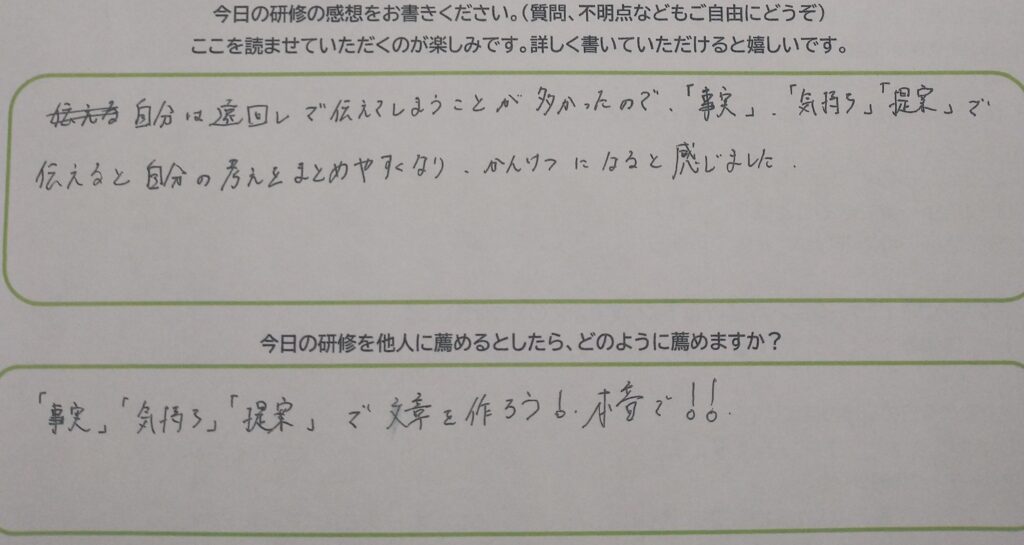 今日の研修の感想をお書きください。(質問、不明点などもご自由にどうぞ)
ここを読ませていただくのが楽しみです。詳しく書いていただけると嬉しいです。
伝え方 自分は遠回しで伝えてしまうことが多かったので、「事実」、「気持ち」「提案」で
伝えると自分の考えをまとめやすくなり、かんけつになると感じました.
今日の研修を他人に薦めるとしたら、どのように薦めますか?
「事実」「気持ち」「提案」で文章を作ろう!. 本音で!!.